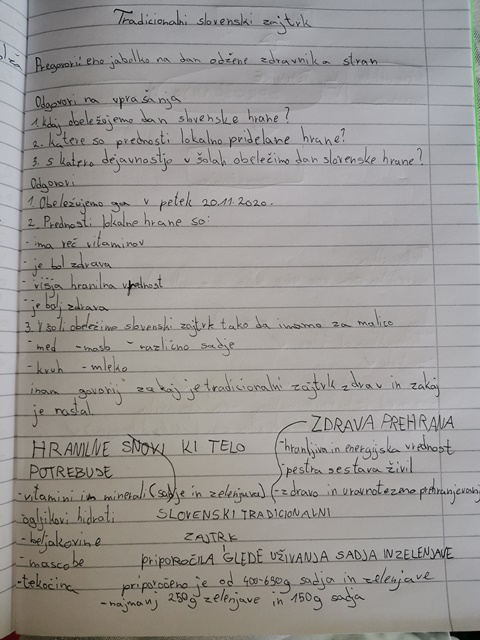 Tradicionalni slovenski zajtrk
Pregovor: eno jabolko na dan odžene zdravnika stran
Odgovori na vprašanja
1. kdaj obeležujemo dan slovenske hrane?
2. katere so prednosti lokalno pridelane hrane?
3. s katero dejavnostjo v šolah obeležimo dan slovenske hrane?
Odgovori
1. Obeležujemo ga v petek 20.11.2020.
2. Prednosti lokalne hrane so:
- ima več vitaminov
- je bol zdrava
- višja hranilna vrednost
- je bolj zdrava
3. V šoli obeležimo slovenski zajtrk tako da imamo za malico
- med - maslo - različno sadje
- kruh - mleko
in govorij zakaj je tradicionalni zajtrk zdrav in zakaj
je nastal.
ZDRAVA PREHRANA
HRANILNE SNOVI KI TELO - hranljiva in energijska vrednost
POTREBUJE - pestra sestava živil
- vitamini in minerali (sadje in zelenjava) - zdravo in uravnoteženo prehranjevanj
ogljikovi hidrati SLOVENSKI TRADICIONALNI
- beljakovine ZAJTRK
- mascobe PRIPOROČILA GLEDE UŽIVANJA SADJA IN ZELENJAVE
- tekočina priporočeno je od 400-650g sadja in zelenjave
- najmanj 250g zelenjave in 150g sadja